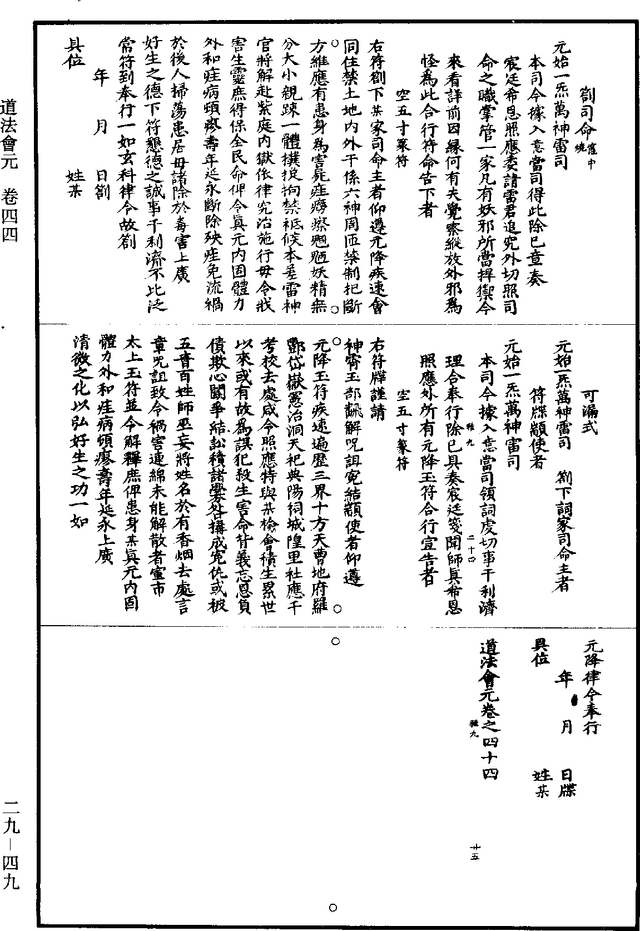 劄司命 竈中燒
元始一炁萬神雷司
本司今據入意當司得此除已章奏
宸廷希恩照應委請雷君追究外切照司
命之職掌管一家凡有妖邪所當捍禦今
來看詳前因緣何有失覺察縱放外邪為
怪為此合行符命告下者
空五寸篆符
右符劄下某家司命主者仰遵元降疾速會
同住禁土地內外干係六神周匝禁制把斷
方維應有患身為害屍疰癆瘵魍魎妖精無
分大小親踈一體撲捉拘禁祗候本差雷神
官將解赴紫庭內獄依律究治施行毋令戕
害生靈庶得保全民命俾令真元內固體力
外和疰病頓瘳壽年延永斷除殃疰免流禍
於後人掃蕩患居毋諸除於毒害上廣
好生之德下符懇德之誠事干利濟不比泛
常符到奉行一如玄科律令故劄
年 月 日劄
具位 姓某
可漏式
元始一炁萬神雷司 劄下詞家司命主者
符牒顓使者
元始一炁萬神雷司
本司今據入意當司領詞虔切事干利濟
理合奉行除已具奏宸廷箋聞師真希恩
照應外所有元降玉符合行宣告者
空五寸篆符
右符牒謹請
神霄玉部飜解呪詛冤結顓使者仰遵
元降玉符疾速遍歷三界十方天曹地府羅
酆岱嶽憲治洞天祀典陽祠城隍里社應干
考校去處咸令照應特與某檢會積生累世
以來或有故為誤犯殺生害命背義忘恩負
債欺心鬪爭結訟積諸釁咎搆成冤仇或被
五音百姓師巫妄將姓名於有香烟去處言
章咒詛致令禍害連綿未能解散者宣市
太上玉符並令解釋庶俾患身某真元內固
體力外和疰病頓瘳壽年延永上廣
清微之化以弘好生之功一如
元降律令奉行
年 月 日牒
具位 姓某
道法會元卷之四十四
道法會元 卷四四
二九－四九